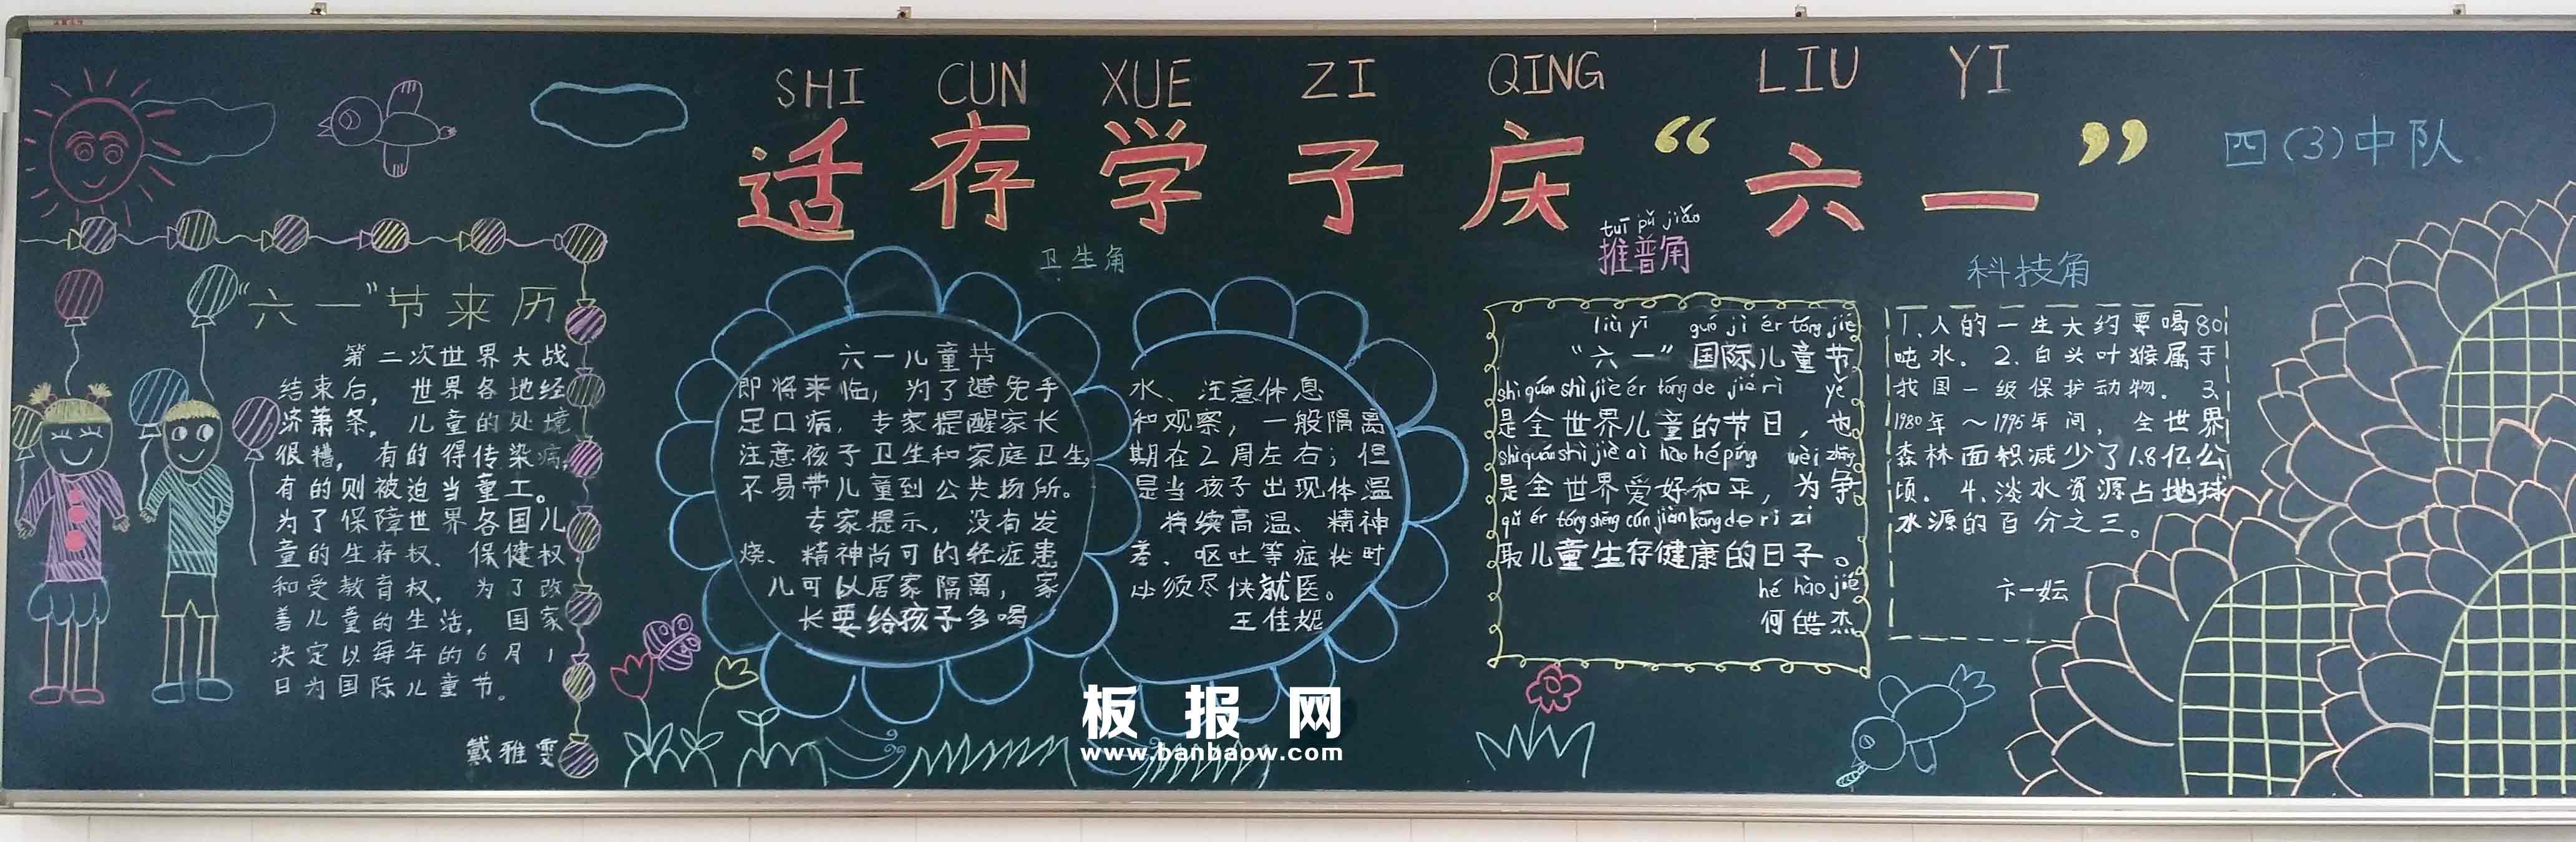 SHI CUN XUE ZI QING LIU YI
适存学子庆“六一”
四(3)中队
“六一”节来历
第二次世界大战
结束后，世界各地经
济萧条，儿童的处境
很糟，有的得传染病，
有的则被迫当童工。
为了保障世界各国儿
童的生存权、保健权
和受教育权，为了改
善儿童的生活，国家
决定以每年的6月1
日为国际儿童节。
戴雅雯
卫生角
六一儿童节
即将来临，为了避免手
足口病，专家提醒家长
注意孩子卫生和家庭卫生，
不易带儿童到公共场所。
专家提示，没有发
烧、精神尚可的轻症患
儿可以居家隔离，家
长要给孩子多喝
水、注意休息
和观察，一般隔离
期在2周左右；但
是当孩子出现体温
持续高温、精神
差、呕吐等症状时
必须尽快就医。
王佳妮
tuī pǔ jiǎo
推普角
liù yī guó jì ér tóng jié
“六一”国际儿童节
shì quán shì jiè ér tóng de jié rì yě
是全世界儿童的节日，也
shì quán shì jiè ài hào hé píng wèi zhēng
是全世界爱好和平，为争
qǔ ér tóng shēng cún jiàn kāng de rì zi
取儿童生存健康的日子。
hé hào jié
何皓杰
科技角
1.人的一生大约要喝80
吨水。2.白头叶猴属于
我国一级保护动物。3.
1980年～1995年间，全世界
森林面积减少了1.8亿公
顷。4.淡水资源占地球
水源的百分之三。
卞一妘
板报网
www.banbaow.com